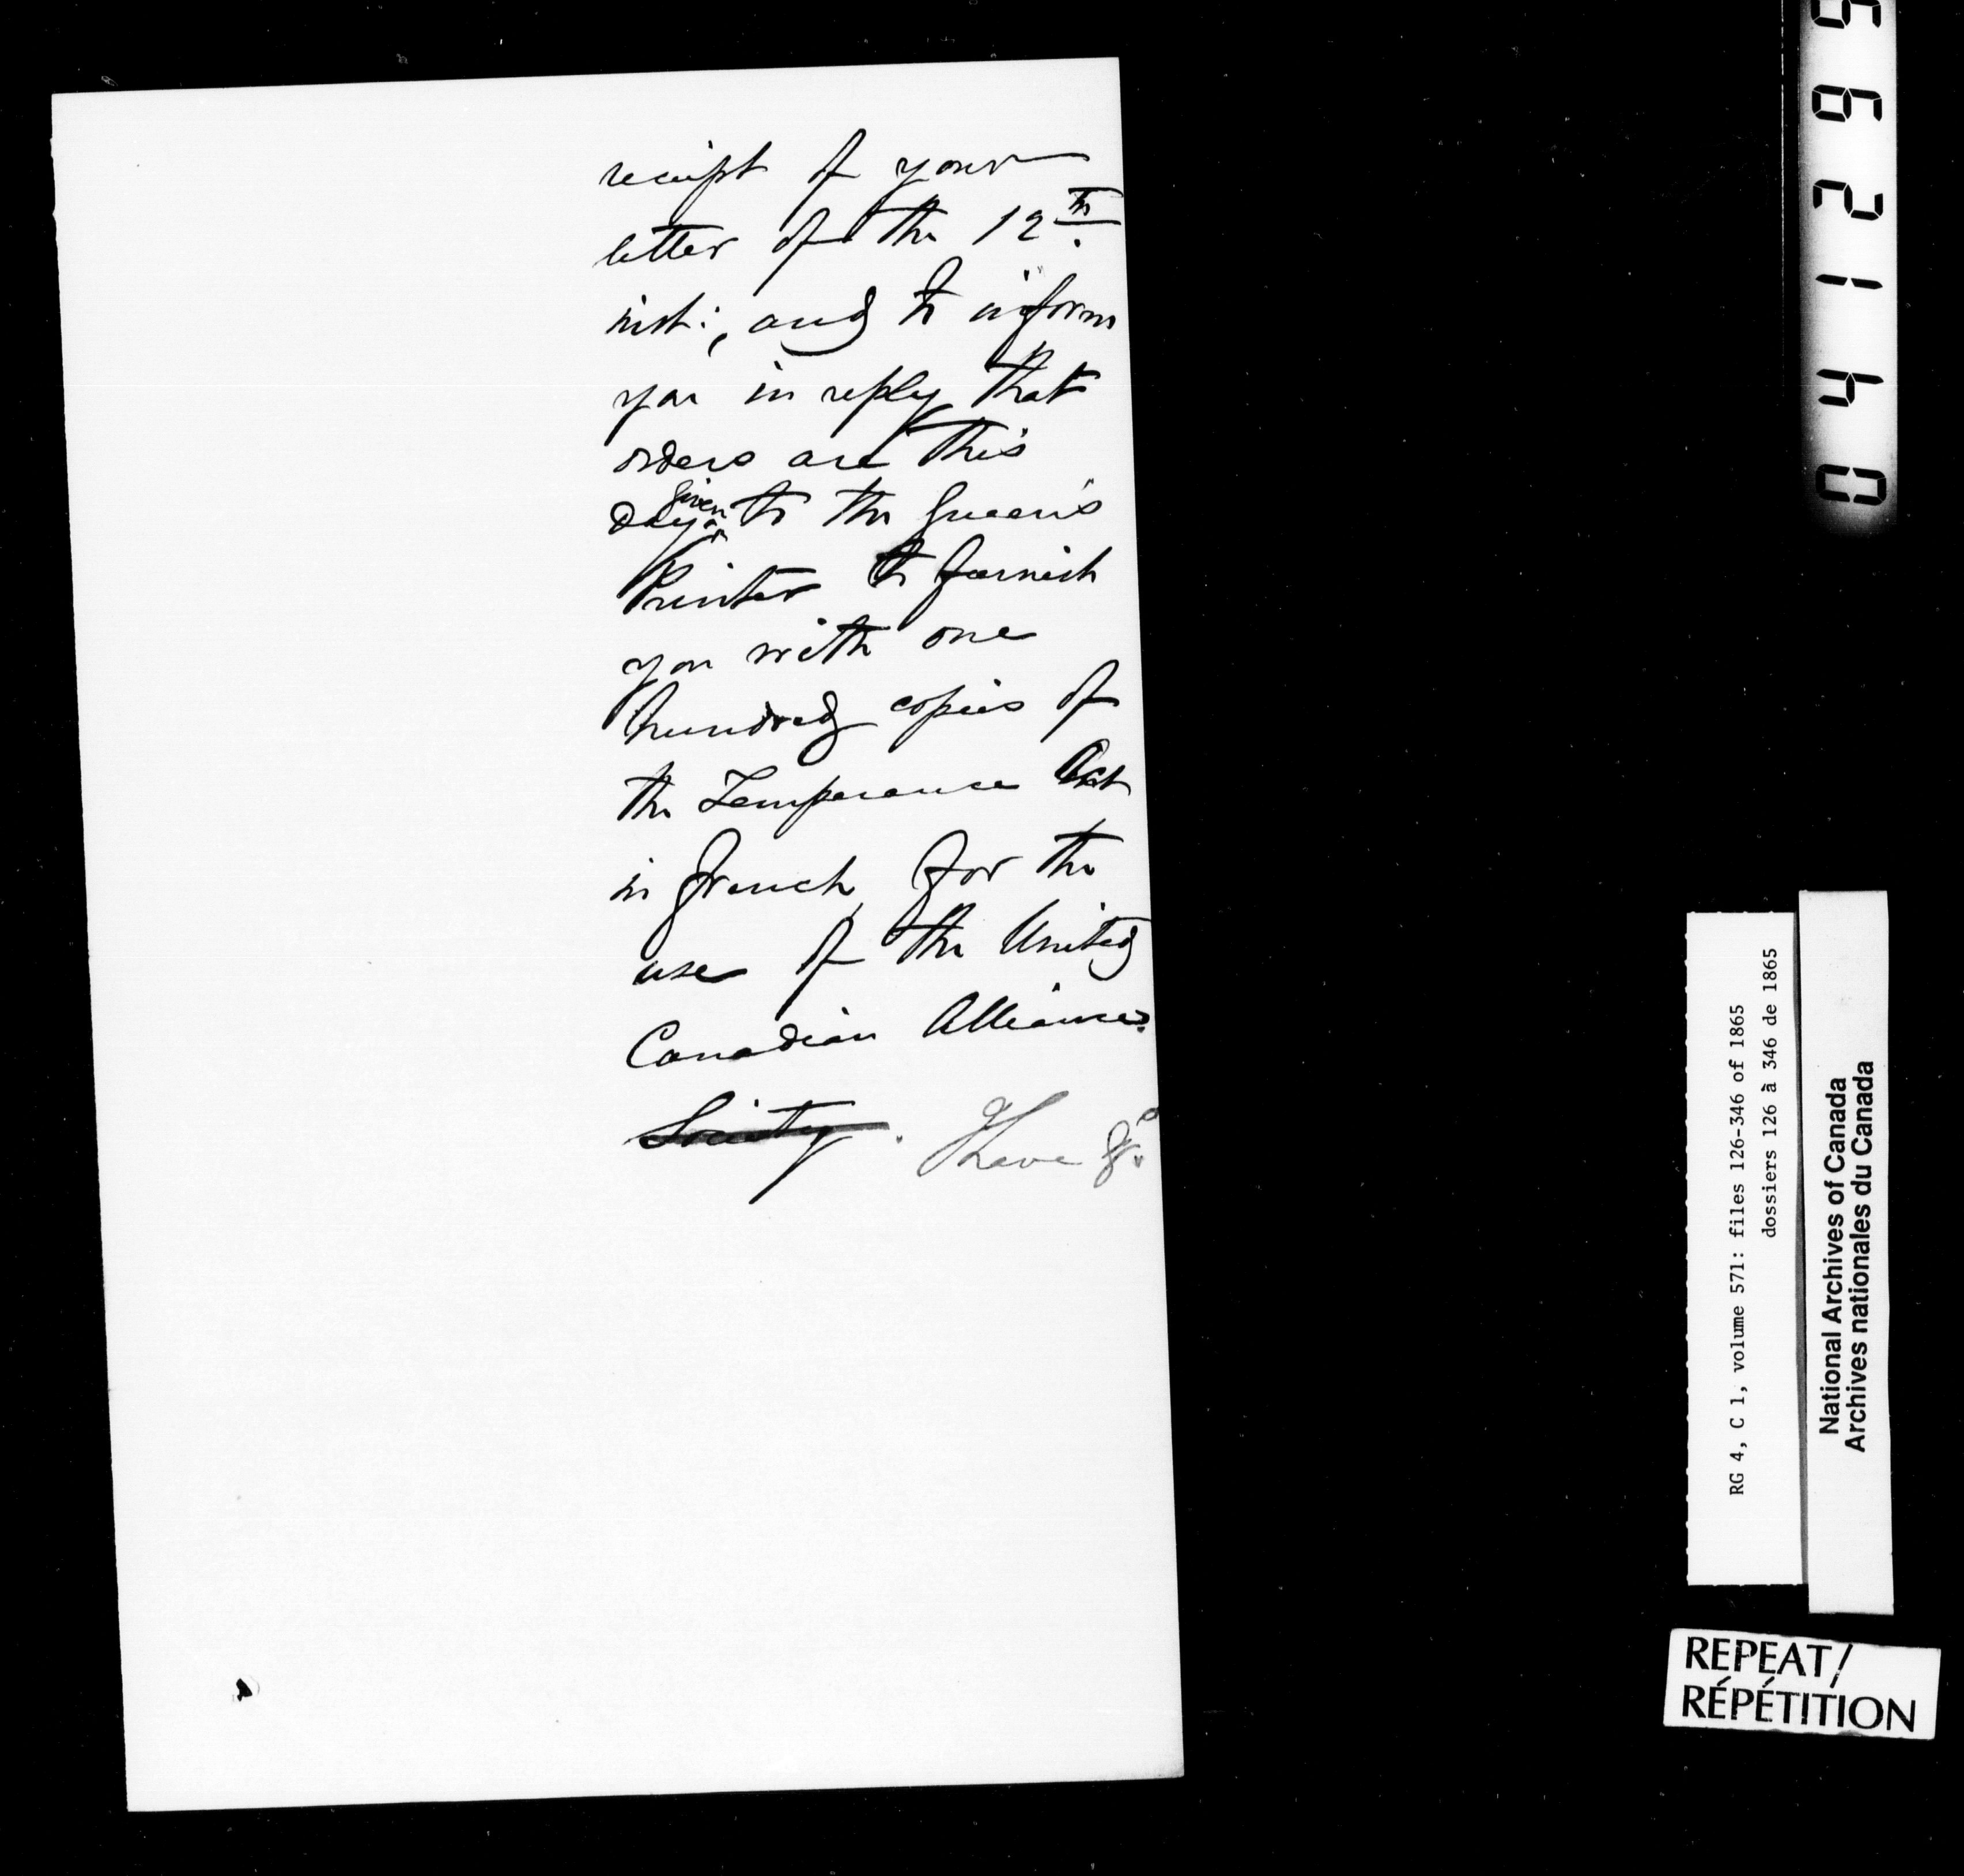 receipt of your
letter of the 12th
inst:, and to inform
you in reply that
orders are this
day given to the Queen's
Printer to furnish
you with one
hundred copies of
the Temperance Act
in french, for the
use of the United
Canadian Alliance.
Society. I have &c
5
6
2
1
4
0
RG 4, C 1, volume 571: files 126-346 of 1865
dossiers 126 à 346 de 1865
National Archives of Canada
Archives nationales du Canada
REPEAT/
RÉPÉTITION